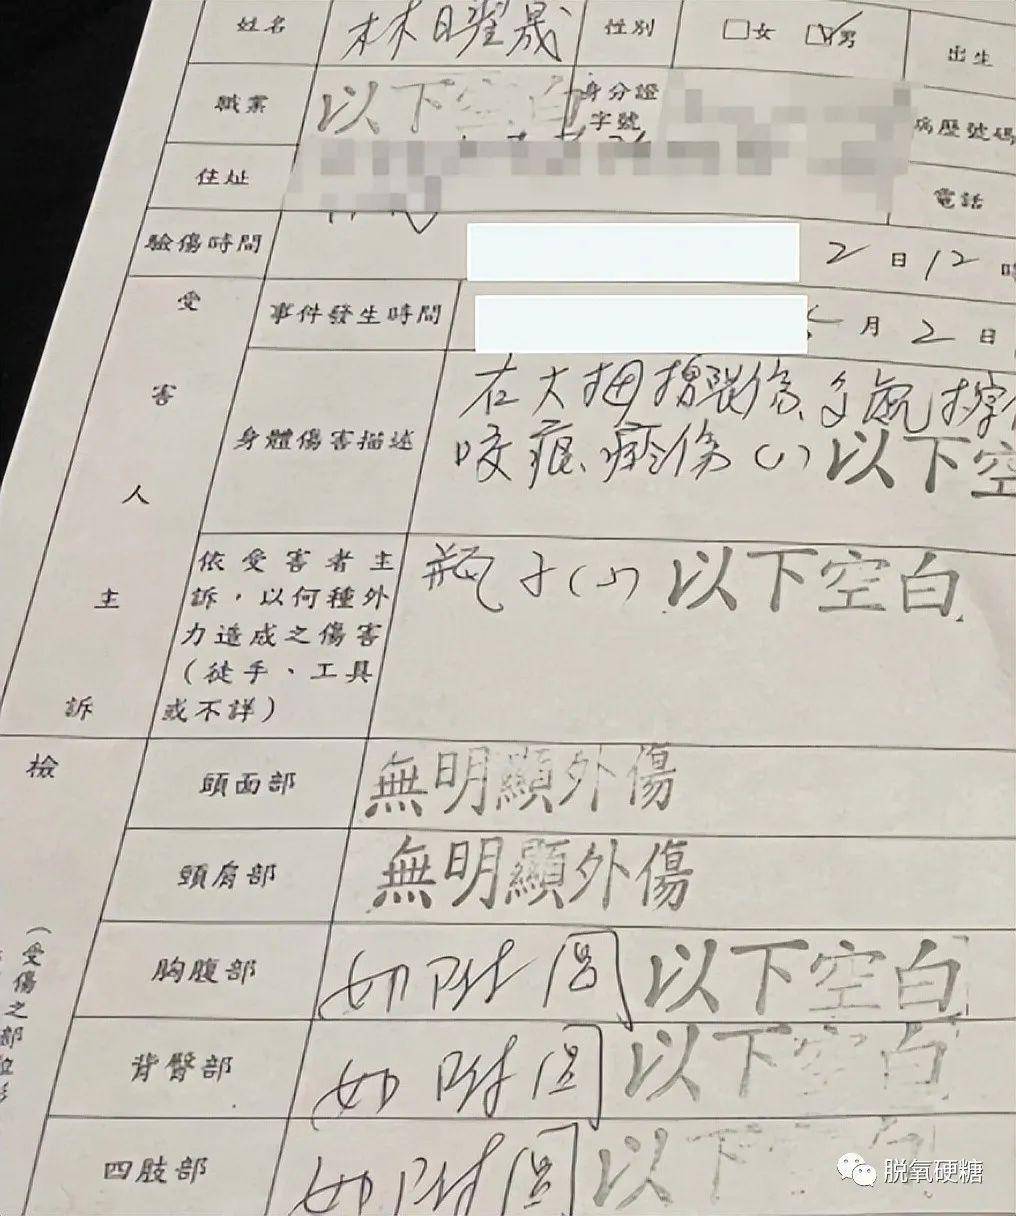 姓名 林日曜晟 性別 □女 ☑男 出生
職業 以下空白 身分證字號 病歷號碼
住址 電話
驗傷時間 2日12時
受害人主訴
事件發生時間 5月2日
身體傷害描述 右大拇指裂傷、
咬痕、瘀傷(ノ) 以下空
依受害者主
訴,以何種外
力造成之傷害
(徒手、工具
或不詳)
瓶子(ノ) 以下空白
檢
(受傷之部位
頭面部 無明顯外傷
頸肩部 無明顯外傷
胸腹部 如附圖 以下空白
背臀部 如附圖 以下空白
四肢部 如附圖 以下
脱氧硬糖